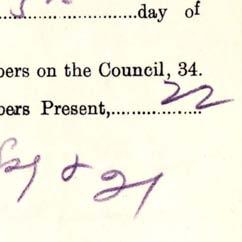 day of
bers on the Council, 34.
bers Present, 22
& 21